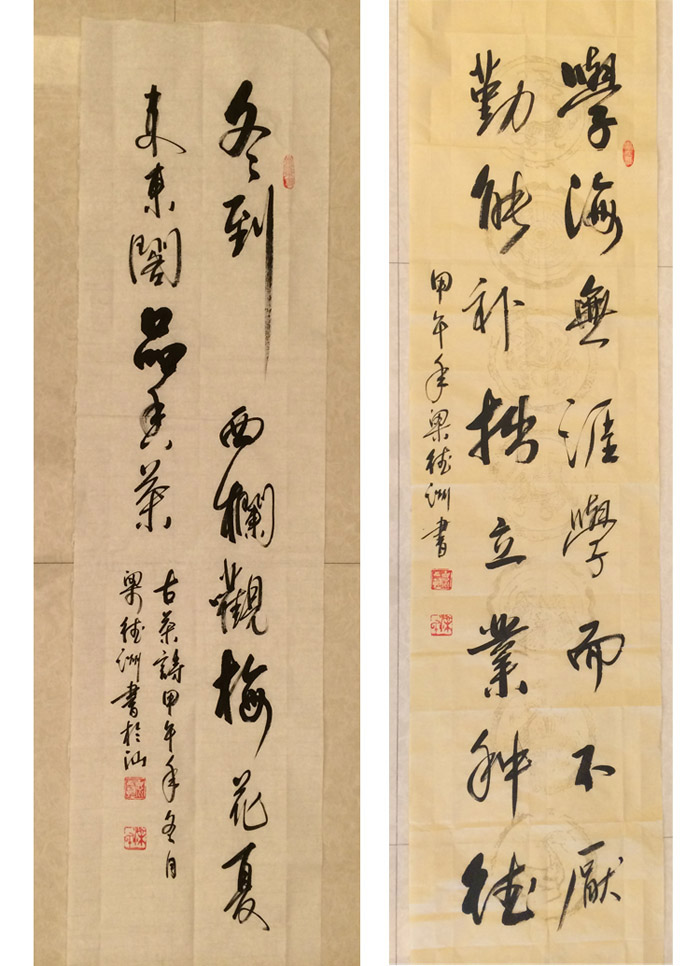 冬到西欄觀梅花夏
来東閣品香茶
古茶詩甲午年冬月
梁德洲書於汕
學海無涯學而不厭
勤能补拙立業种德
甲午年梁德洲書